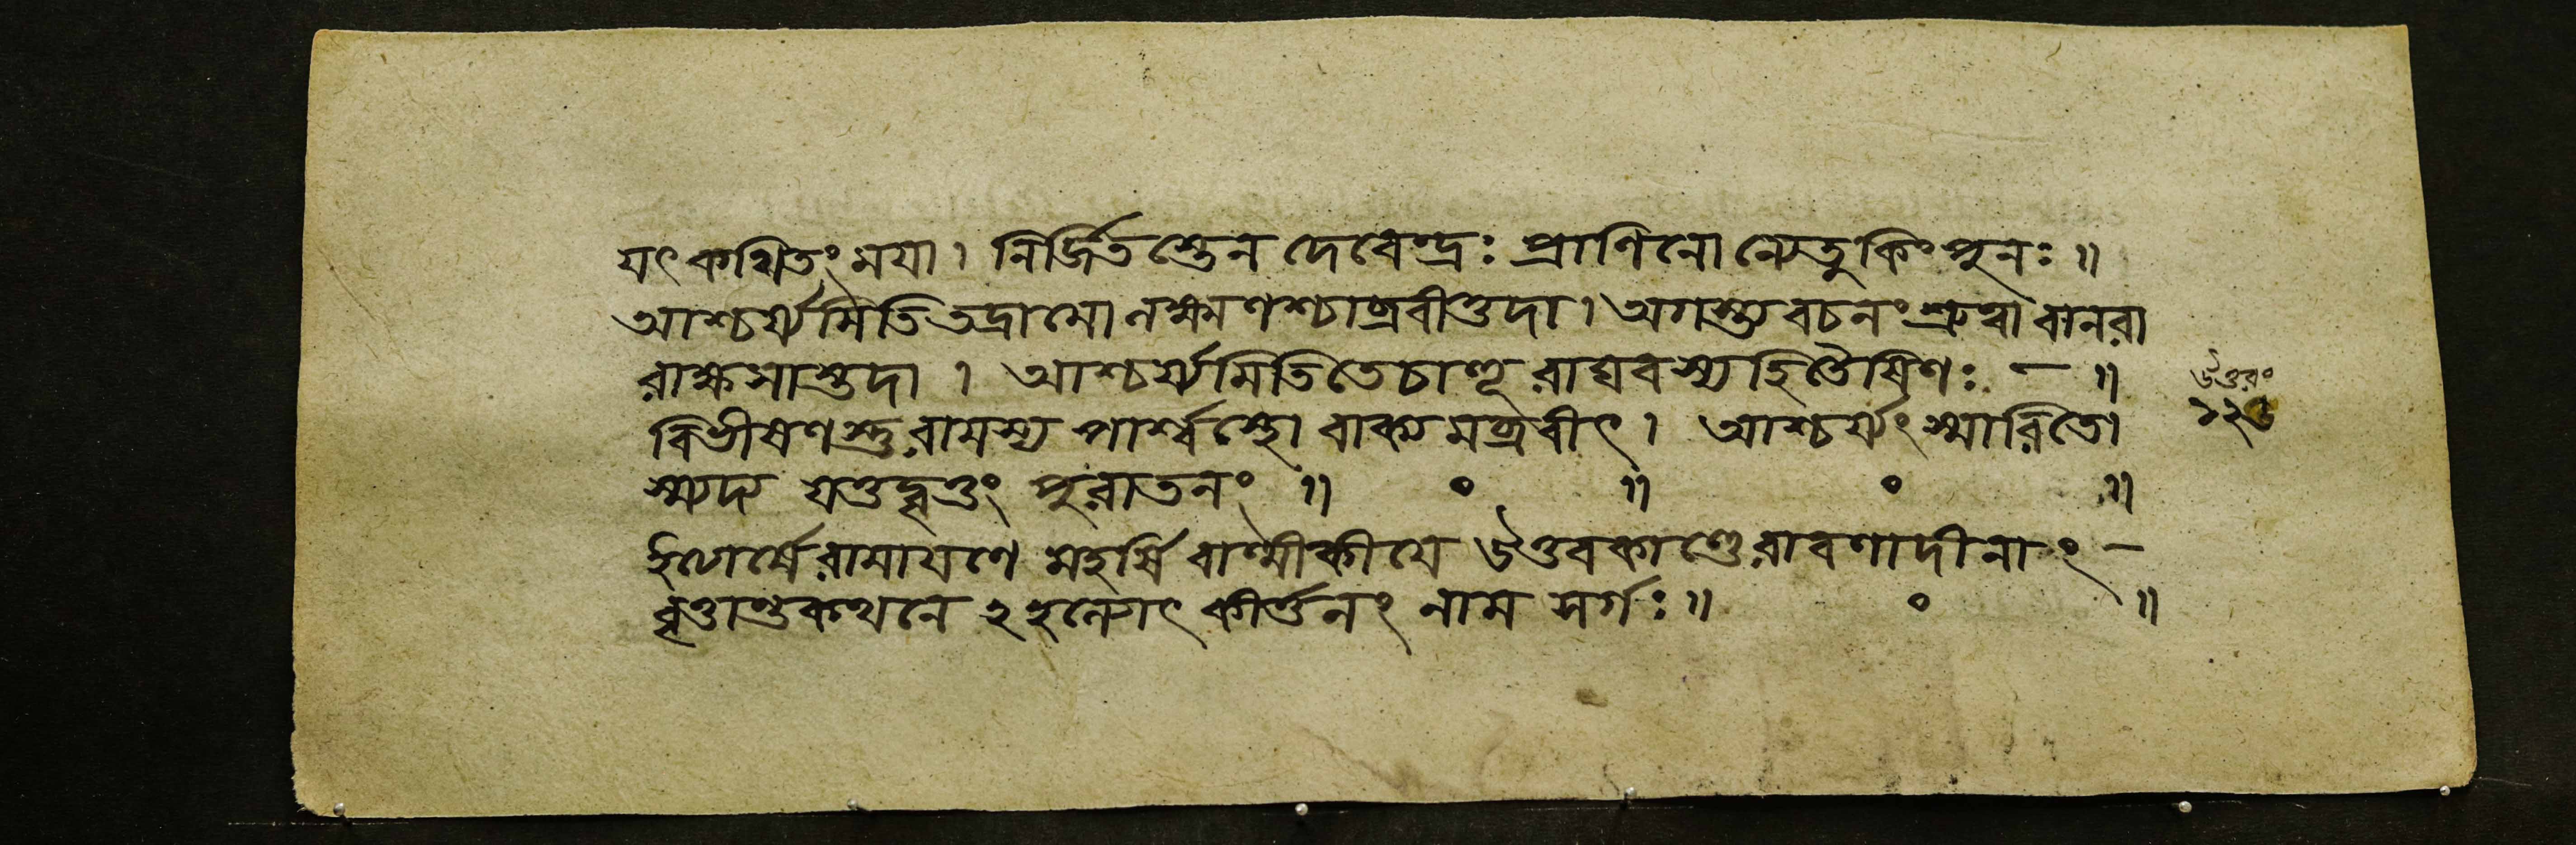 যৎ কথিতং ময়া। নির্জিতস্তেন দেবেন্দ্রঃ প্রাণিনোন্যেতু কিং পুনঃ॥
আশ্চর্য্যমিতি তদ্রামো লক্ষ্মণশ্চাব্রবীত্তদা। অগস্ত্যবচনং শ্রুত্বা বানরা
রাক্ষসাস্তদা। আশ্চর্য্যমিতি তে চাহূ রাঘবস্য হিতৈষিণঃ –॥
বিভীষণস্তু রামস্য পার্শ্বস্থো বাক্যমব্রবীৎ। আশ্চর্য্যং স্মারিতো
স্ম্যদ্য যত্তদ্বৃত্তং পুরাতনং॥ ॰ ॥ ॰ ॥
ইত্যার্ষে রামায়ণে মহর্ষি বাল্মীকীয়ে উত্তরকাণ্ডে রাবণাদীনাং –
বৃত্তান্তকথনে কীর্ত্তনং নাম সর্গঃ॥ ॰ ॥
উত্তরং